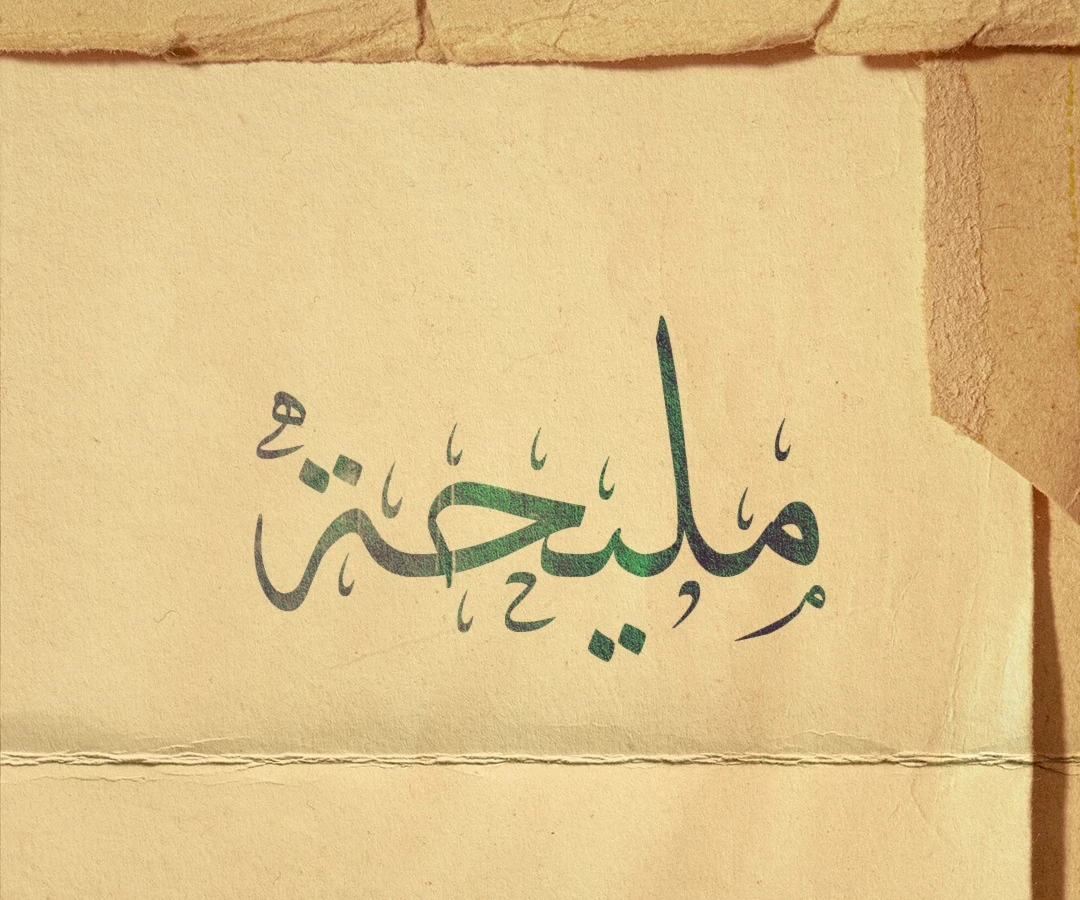 مليحة